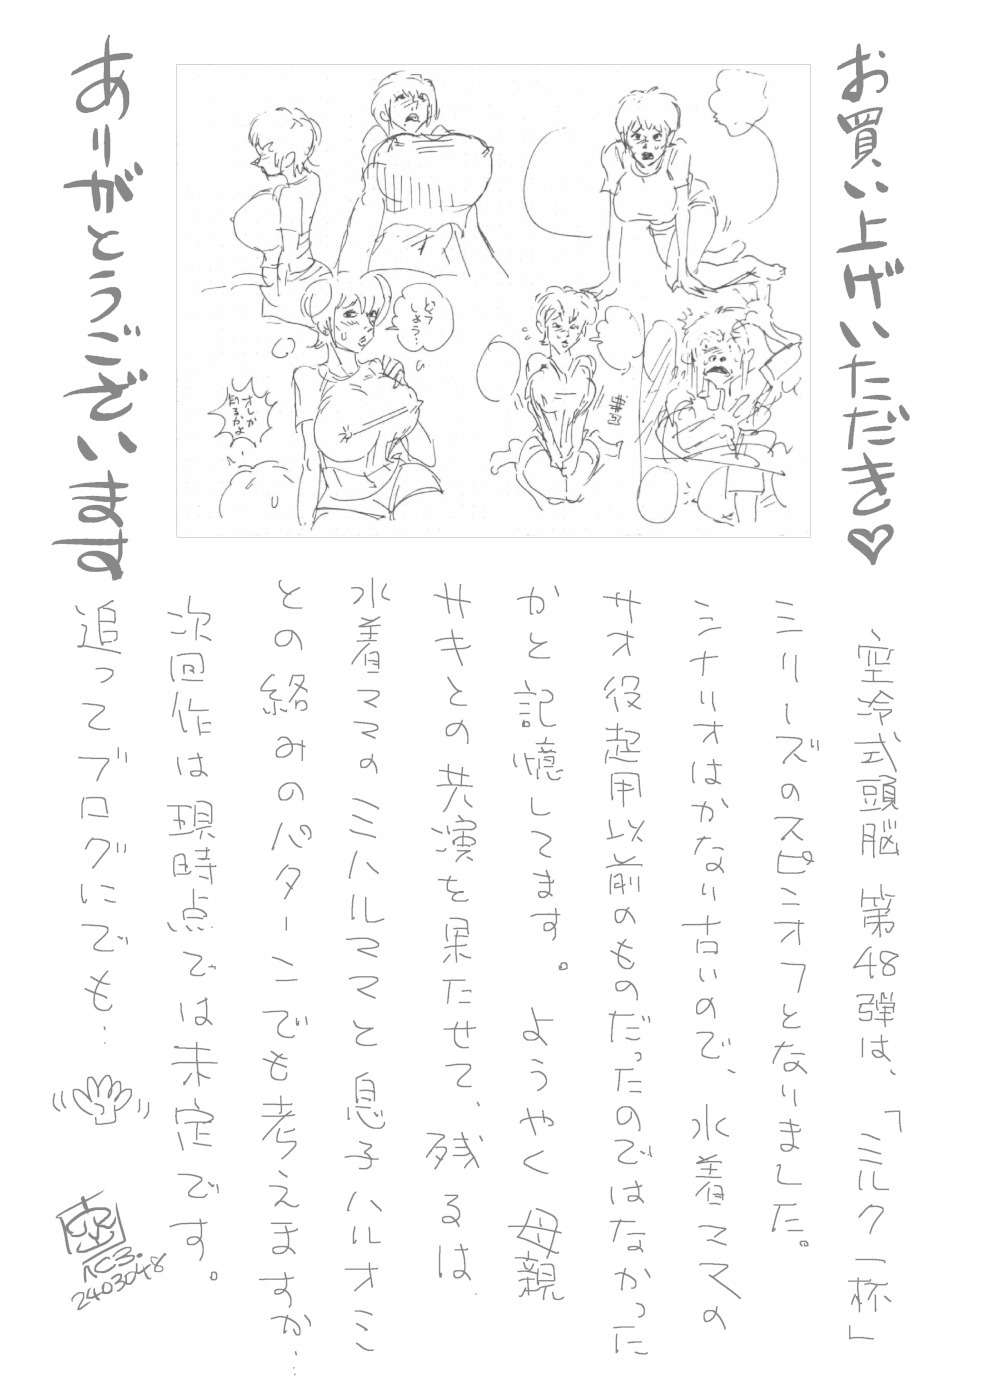 お買い上げいただき♡
ありがとうございます
どうしよう…
オレが
釣るかよ
空冷式頭脳 第48弾は、「ミルク一杯」
シリーズのスピンオフとなりました。
シナリオはかなり古いので、水着ママの
サオ役起用以前のものだったのではなかった
かと記憶してます。ようやく母親
サキとの共演を果たせて、残るは
水着ママのミハルママと息子ハルオミ
との絡みのパターンでも考えますか…
次回作は現時点では未定です。
追ってブログにでも…
AC3.
2403048